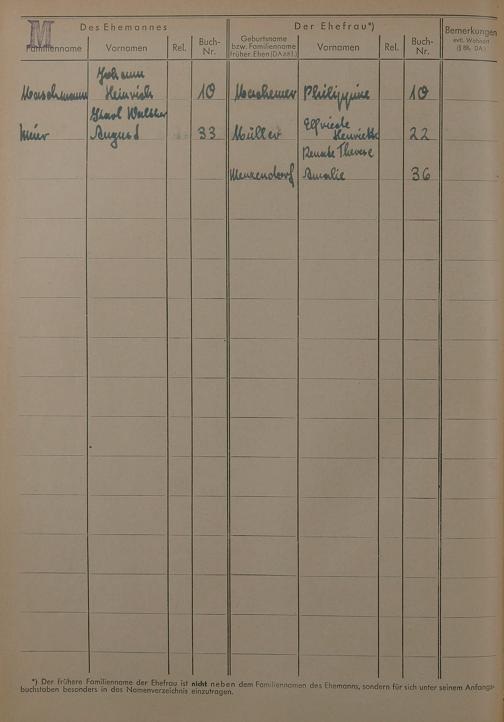 M
Des Ehemannes
Der Ehefrau*)
Bemerkungen
evtl. Wohnort
(§ 86, DA.)
Familienname
Vornamen
Rel.
Buch-
Nr.
Geburtsname
bzw. Familienname
früher. Ehen (DA
Vornamen
Rel.
Buch-
Nr.
Johann
Maschmann Heinrich 10 Philippine 10
Walther
Meier August 33 Müller Elfriede
Henriette 22
Renate Therese
Amalie 36
*) Der frühere Familienname der Ehefrau ist nicht neben dem Familiennamen des Ehemanns, sondern für sich unter seinem Anfangs-
buchstaben besonders in das Namenverzeichnis einzutragen.